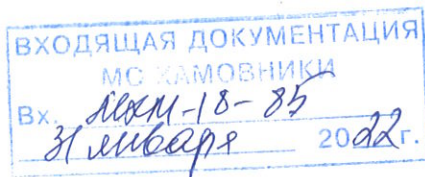 ВХОДЯЩАЯ ДОКУМЕНТАЦИЯ
МС ХАМОВНИКИ
Вх. МХМ-18-85
31 января 2022г.